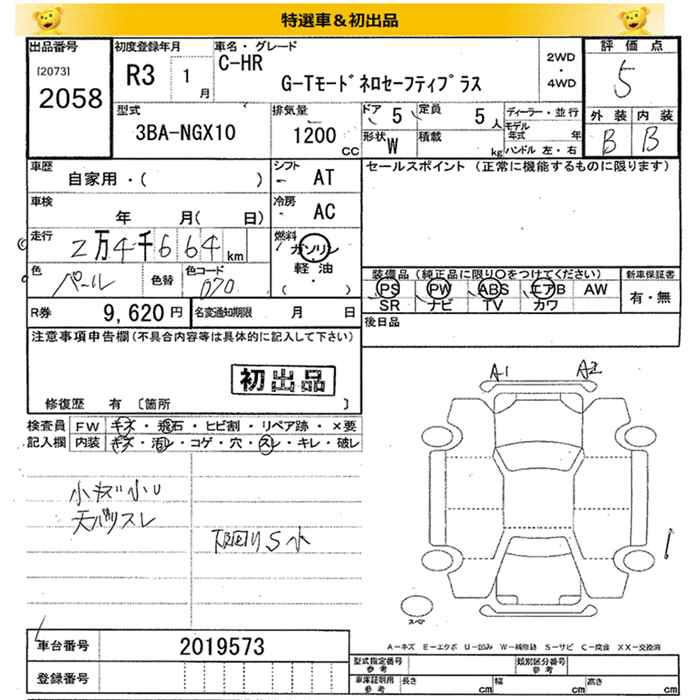 特選車＆初出品
出品番号
[2073]
2058
初度登録年月
R3 1月
車名・グレード
C-HR
G-Tモードネロセーフティプラス
2WD
・
4WD
評価点
5
外装 内装
B B
型式
3BA-NGX10
排気量
1200 CC
ドア 5
定員 5人
形状 W
積載 kg
ディーラー・並行
モデル年式 年
ハンドル 左・右
車歴
自家用・( )
シフト
AT
セールスポイント（正常に機能するものに限ります）
車検
年 月( 日)
冷房
AC
走行
2万4千664km
燃料
ガソリン
軽油・
( )
色
パール
色替
色コード
070
装備品（純正品に限り○をつけてください）
PS PW ABS エアB AW
SR ナビ TV カワ
新車保証書
有・無
R券 9,620円
名変通知期限 月 日
後日品
注意事項申告欄(不具合内容等は具体的に記入して下さい)
初出品
修復歴 有 〔箇所 〕
検査員記入欄
FW キズ・飛石・ヒビ割・リペア跡・×要
内装 キズ・汚レ・コゲ・穴・スレ・キレ・破レ
小キズ小U
天バリスレ
下回りS小
A1 A2
スペア
A－キズ E－エクボ U－凹み W－補修跡 S－サビ C－腐食 XX－交換済
車台番号 2019573
登録番号
型式指定番号 参考
類別区分番号 参考
車庫証明用 参考
長さ cm
幅 cm
高さ cm